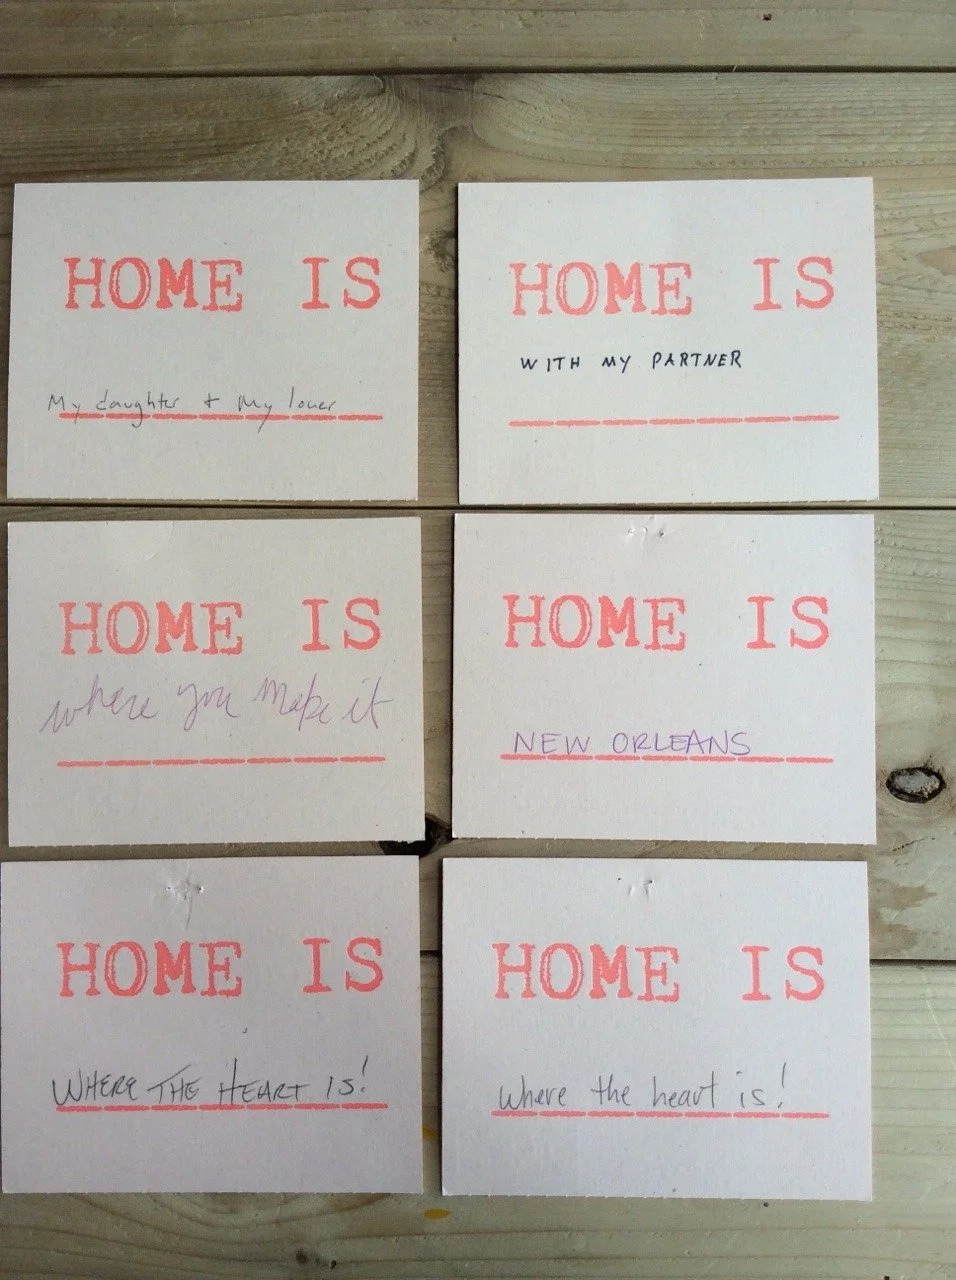 HOME IS
My daughter + My lover
HOME IS
WITH MY PARTNER
HOME IS
where you make it
HOME IS
NEW ORLEANS
HOME IS
WHERE THE HEART IS!
HOME IS
Where the heart is!